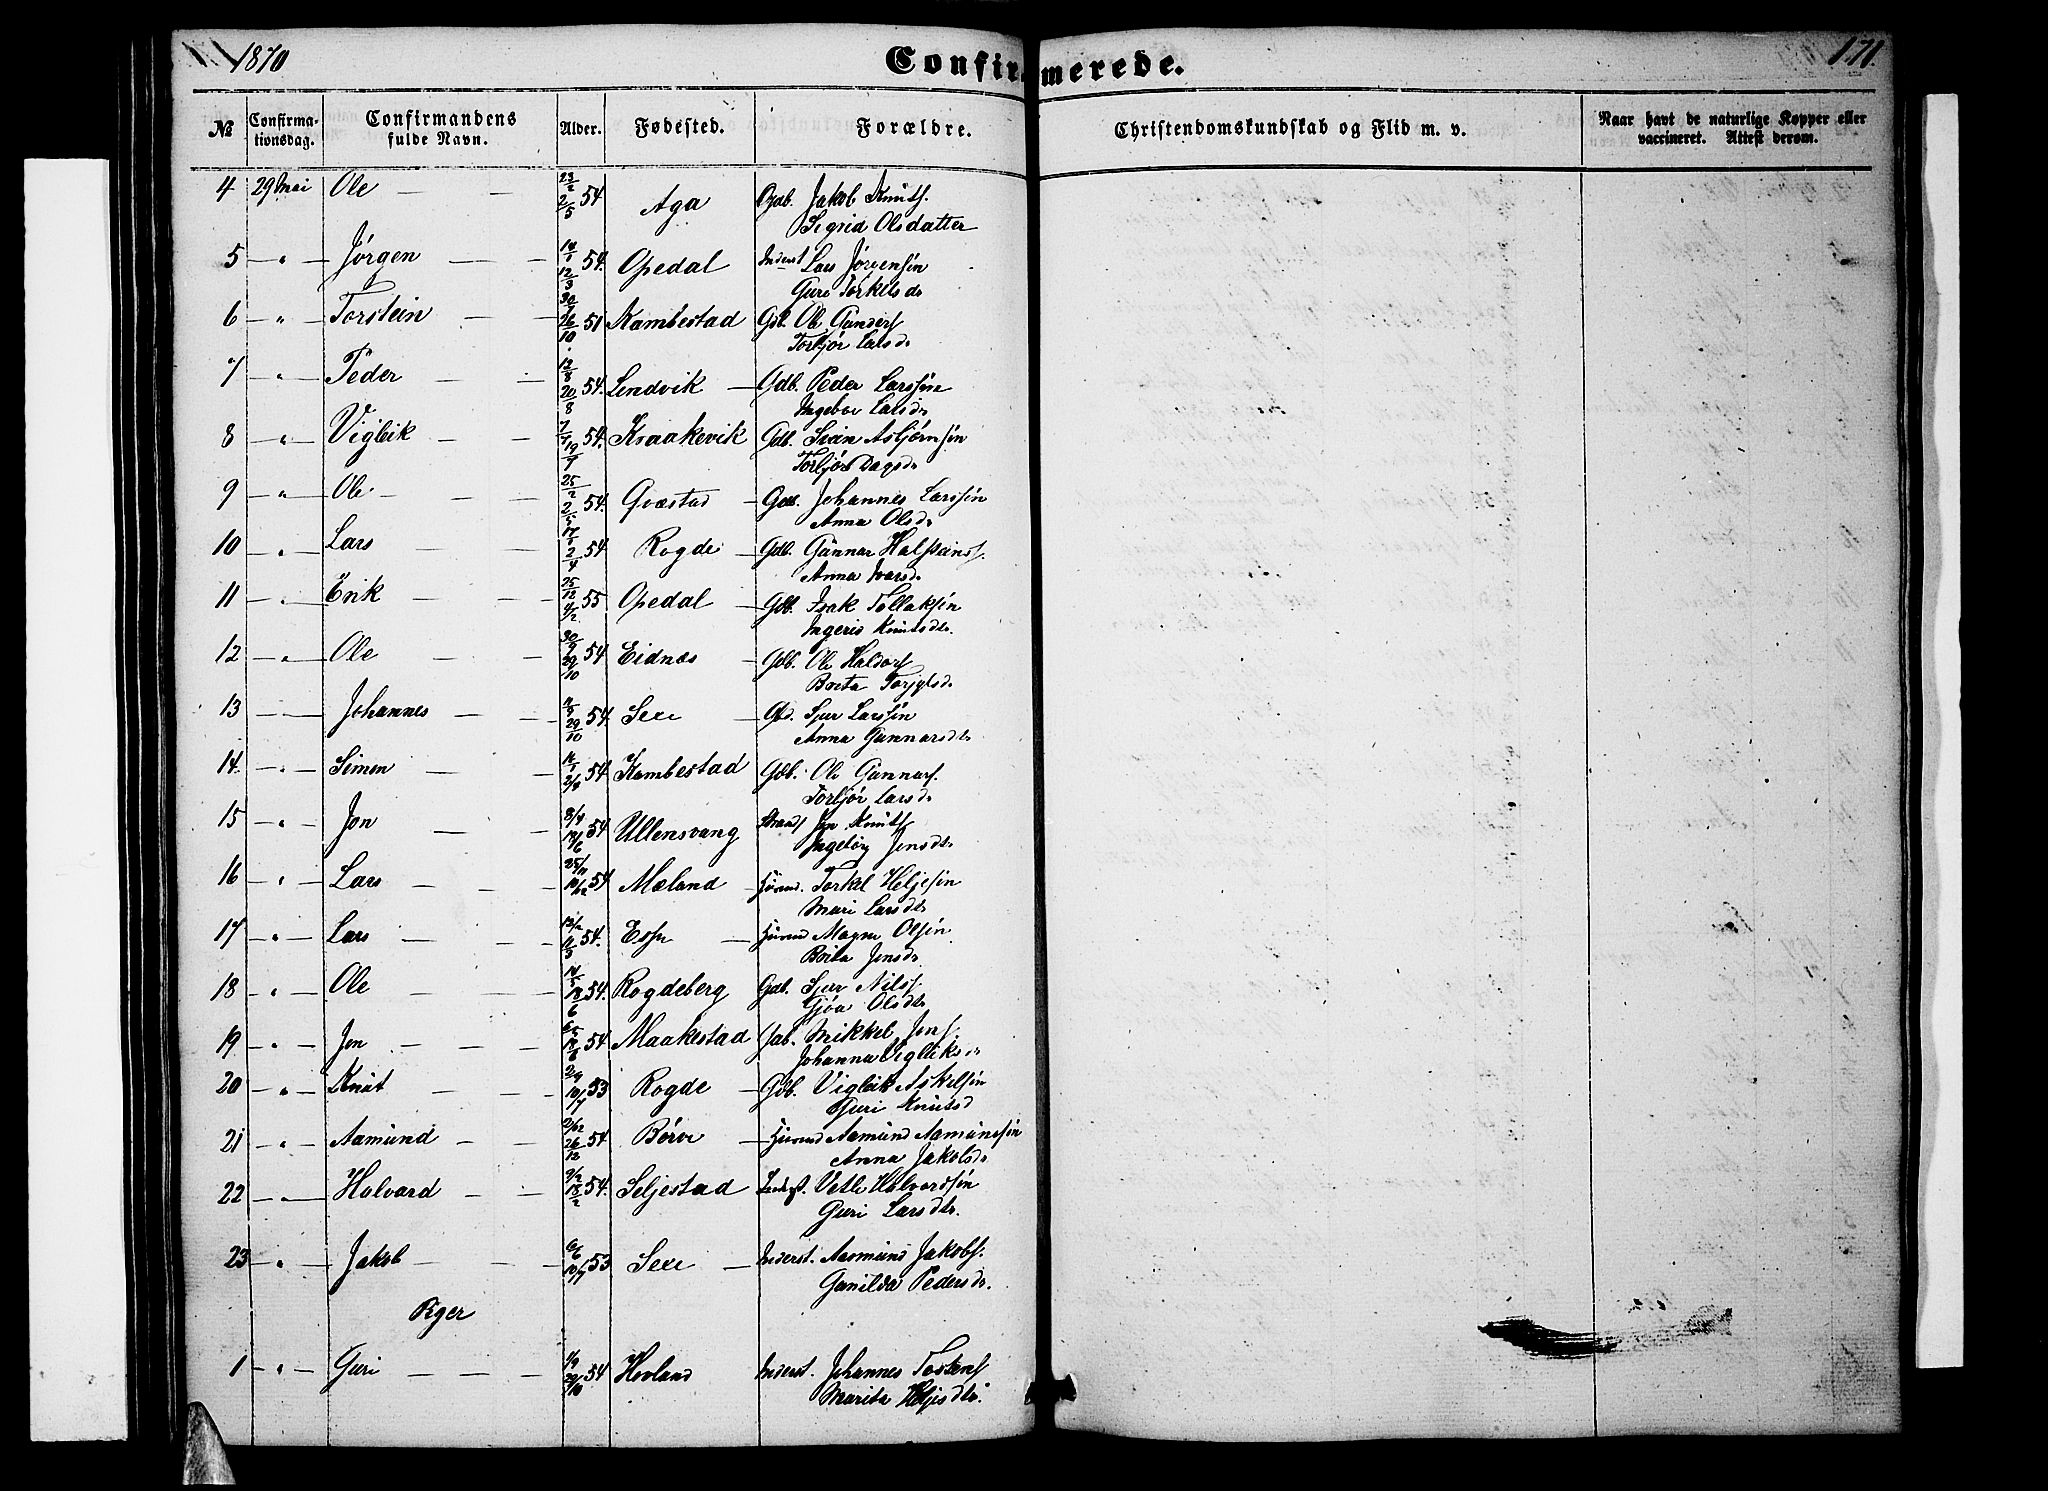 1870
Confirmerede.
171.
№
Confirma-
tionsdag.
Confirmandens
fulde Navn.
Alder.
Fødested.
Forældre.
Christendomskundskab og Flid m. v.
Naar havt de naturlige Kopper eller
vaccineret. Attest derom.
4 29 Mai Ole 23/2 2/5 54 Aga Gdb. Jakob Knuts.
Sigrid Olsdatter
5 " Jørgen 12/3 54. Opedal Inderst Lars Jørgensøn
Guri Torkelsdr
6 " Torstein 26/10 51 Kambestad Gdb. Ole Gunders
Torbjør Larsdr
7 " Peder 12/8 20/8 54. Lendvik Gdb. Peder Larssøn
Ingebor Larsdr
8 " Vigleik 54. Kraakevik Gdb. Svein Asbjørnsøn
Torbjør Dagsdr
9 " Ole 25/2 2/5 54. Qvæstad Gdb. Johannes Larssøn
Anna Olsdr
10 " Lars 2/4 54 Rogde Gdb. Gunnar Halsteins.
Anna Ivarsdr.
11 " Erik 25/12 4/2 55 Opedal Gdb. Isak Tollaksøn
Ingeris Knutsdtr.
12 " Ole 30/9 29/10 54 Eidnæs Gdb. Ole Haldors
Brita Torgilsdr
13 Johannes 29/10 54. Sexe Gdb. Sjur Larssøn
Anna Gunnarsdtr
14. " Simon 2/4 54 Kambestad Gdb. Ole Gunnars.
Torbjør Larsdr
15 " Jon 8/4 18/6 54 Ullensvang Strands Jon Knuts
Ingebor Jonsdtr
16 " Lars 25/11 10/12 54 Mæland Huusmd. Torkel Heljesøn
Mari Larsdtr
17 " Lars 13/2 54. Espe Huusmd Magne Olsøn
Brita Jonsdr.
18 " Ole 14/5 18/6 54. Rogdeberg Gdb. Sjur Nils
Gjøa Olsdtr
19 " Jon 18/6 54 Maakestad Gdb. Mikkel Jons.
Johanna Vigleiksdr
20 " Knut 10/7 53 Rogde Gdb. Vigleik Askelsøn
Guri Knutsd
21 " Aamund 2/12 26/12 54. Børve Huusmd Aamund Aamundsøn
Anna Jakobsdr
22 " Halvard 9/2 18/2 54. Seljestad Inderst. Vetle Halvordsøn
Guri Larsdtr.
23 " Jakob 6/6 10/7 53 Sexe Inderst. Aasmund Jakobs.
Gunilda Pedersdr.
Piger
1 " Guri 1/9 29/10 54 Hovland Inderst. Johannes Tostens
Marita Heljesdtr.